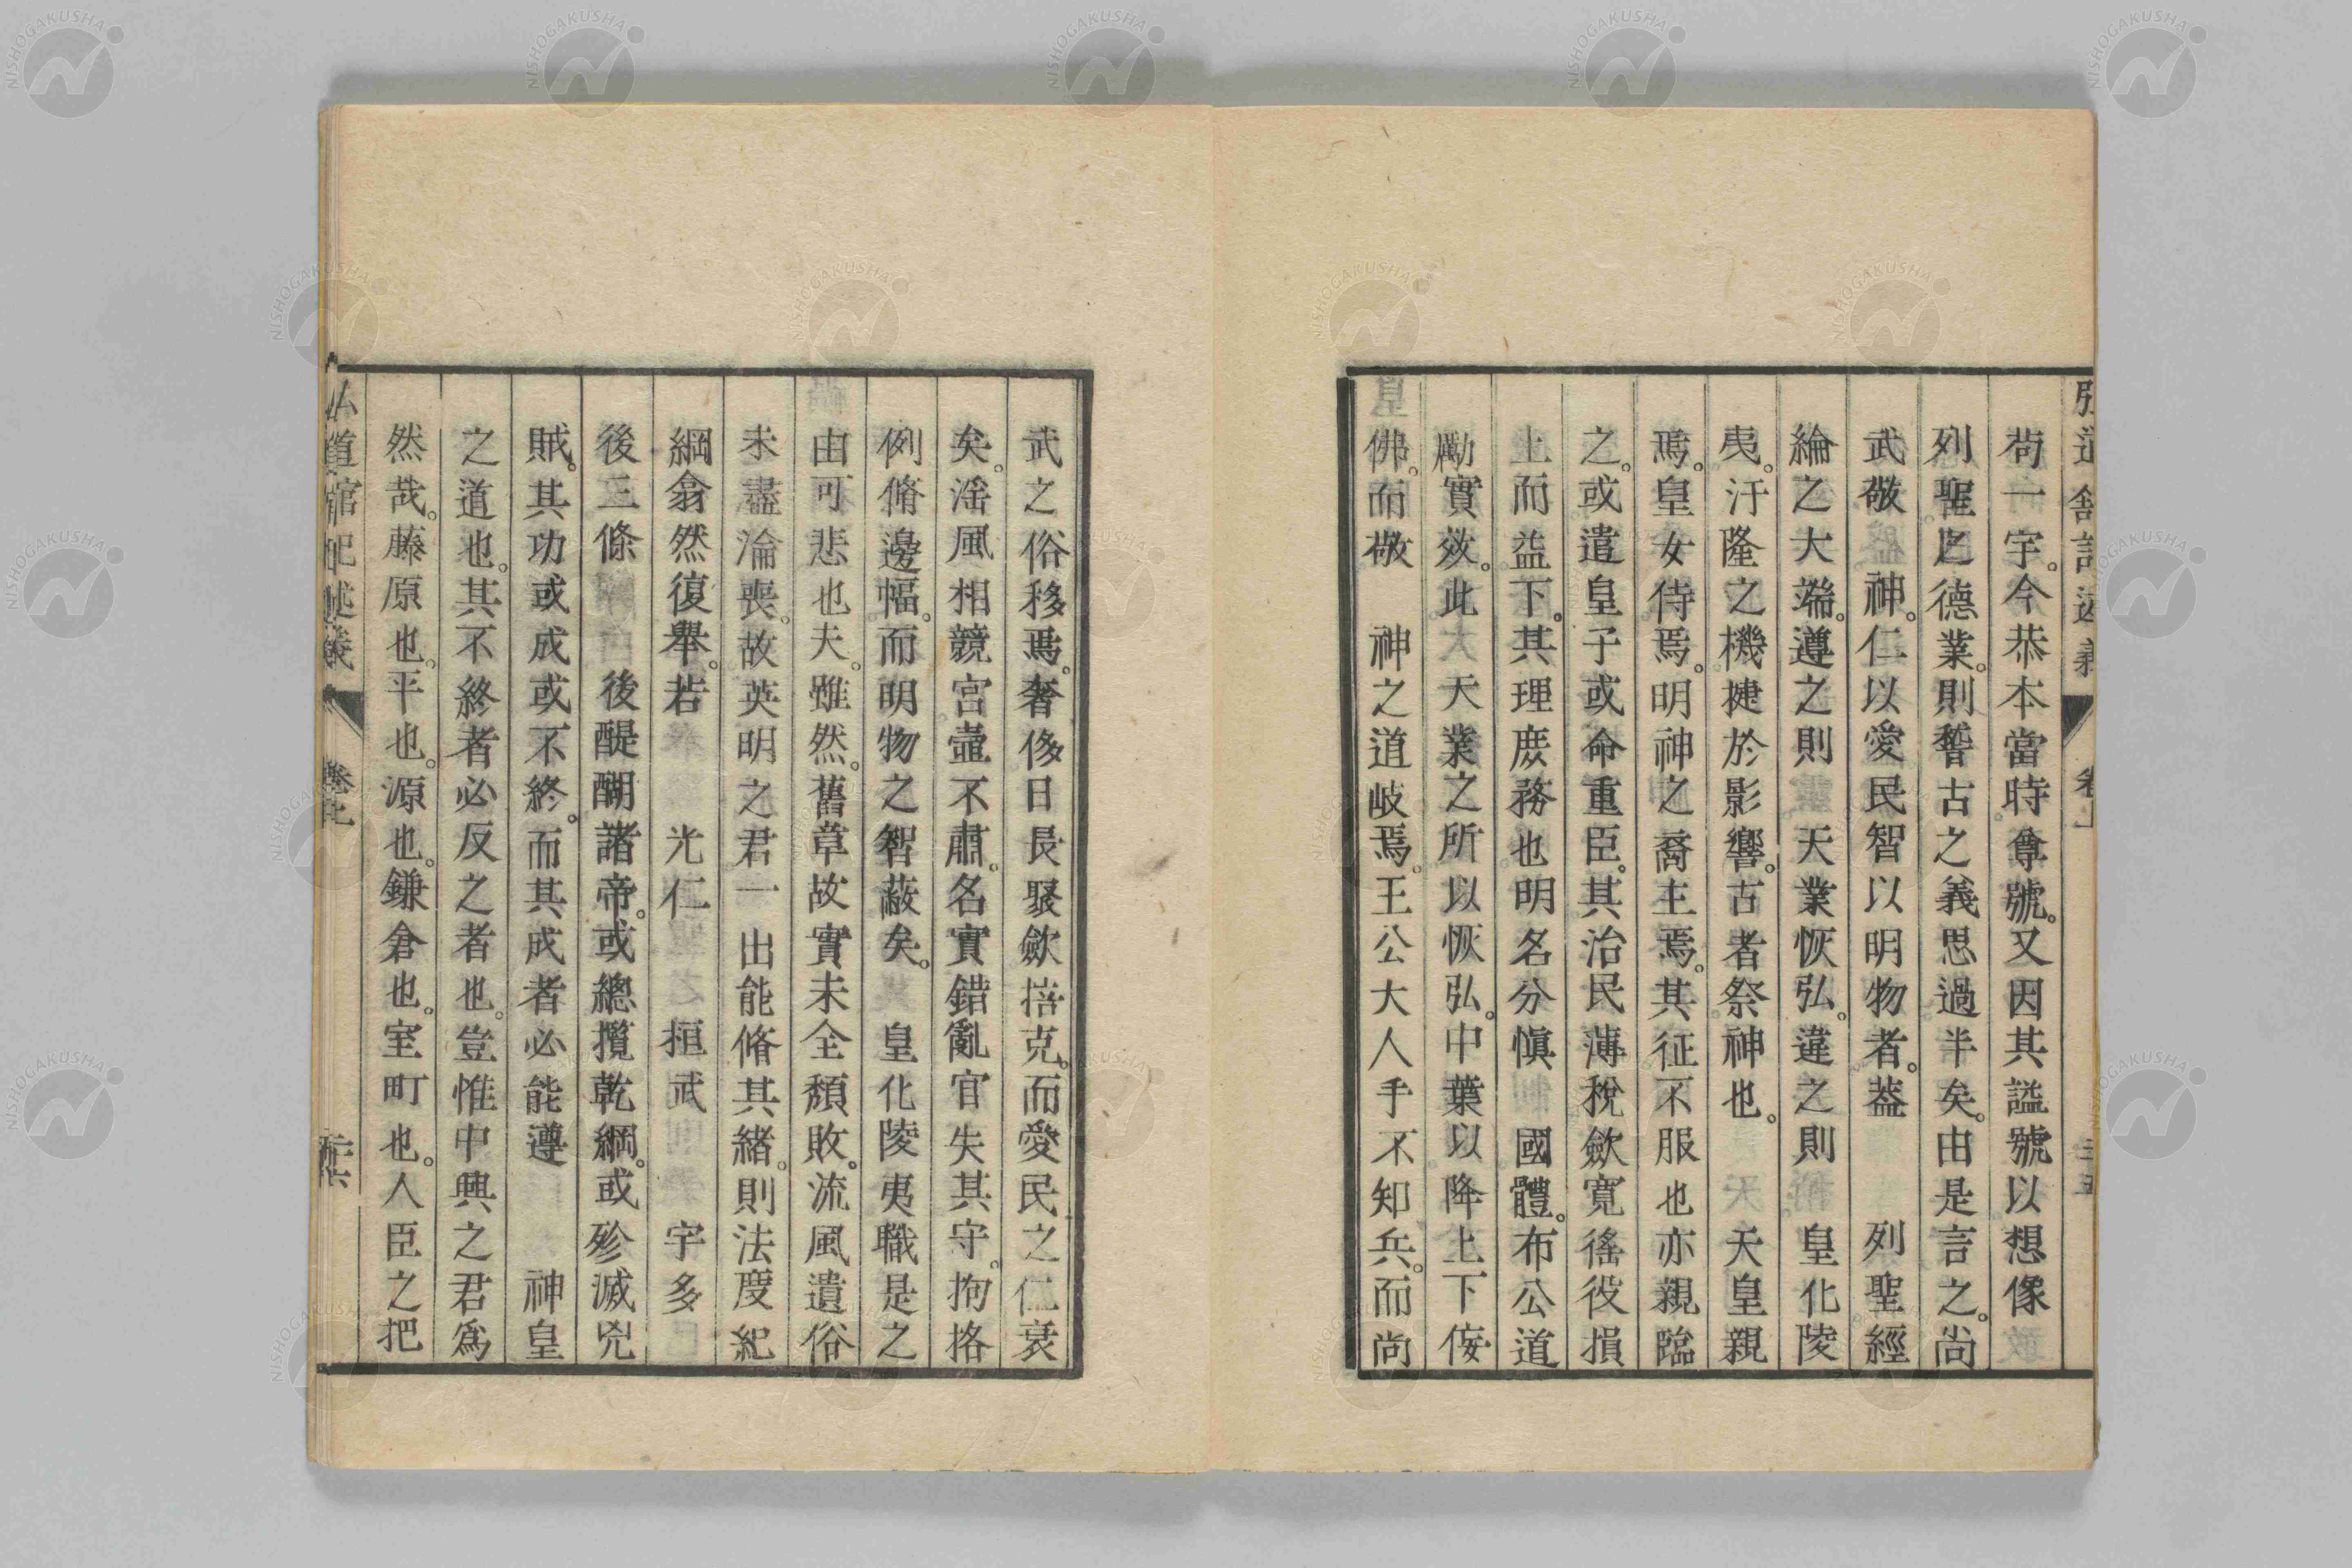 弘道館記述義 卷上 三五
苟一字。今恭本當時尊號。又因其諡號以想像
列聖之德業。則稽古之義思過半矣。由是言之。尚
武敬 神。仁以愛民智以明物者。葢 列聖經
綸之大端。遵之則 天業恢弘。違之則 皇化陵
夷。汙隆之機捷於影響。古者祭神也。 天皇親
焉。皇女侍焉。明神之裔主焉。其征不服也亦親臨
之。或遣皇子或命重臣。其治民薄稅歛寬徭役損
上而益下。其理庶務也明名分愼 國體。布公道
勵實效。此 天業之所以恢弘。中葉以降上下佞
佛。而敬 神之道岐焉。王公大人手不知兵。而尚
武之俗移焉。奢侈日長聚歛掊克。而愛民之仁衰
矣。滛風相競宮壼不肅。名實錯亂官失其守。拘格
例脩邊幅。而明物之智蔽矣。 皇化陵夷職是之
由可悲也夫。雖然。舊章故實未全頹敗。流風遺俗
未盡淪喪。故英明之君一出能脩其緒。則法度紀
綱翕然復舉。若 光仁 桓武 宇多
後三條 後醍醐諸帝。或總攬乾綱。或殄滅兇
賊。其功或成或不終。而其成者必能遵 神皇
之道也。其不終者必反之者也。豈惟中興之君爲
然哉。藤原也。平也。源也。鎌倉也。室町也。人臣之把
弘道館記述義 卷上 三六
NISHOGAKUSHA